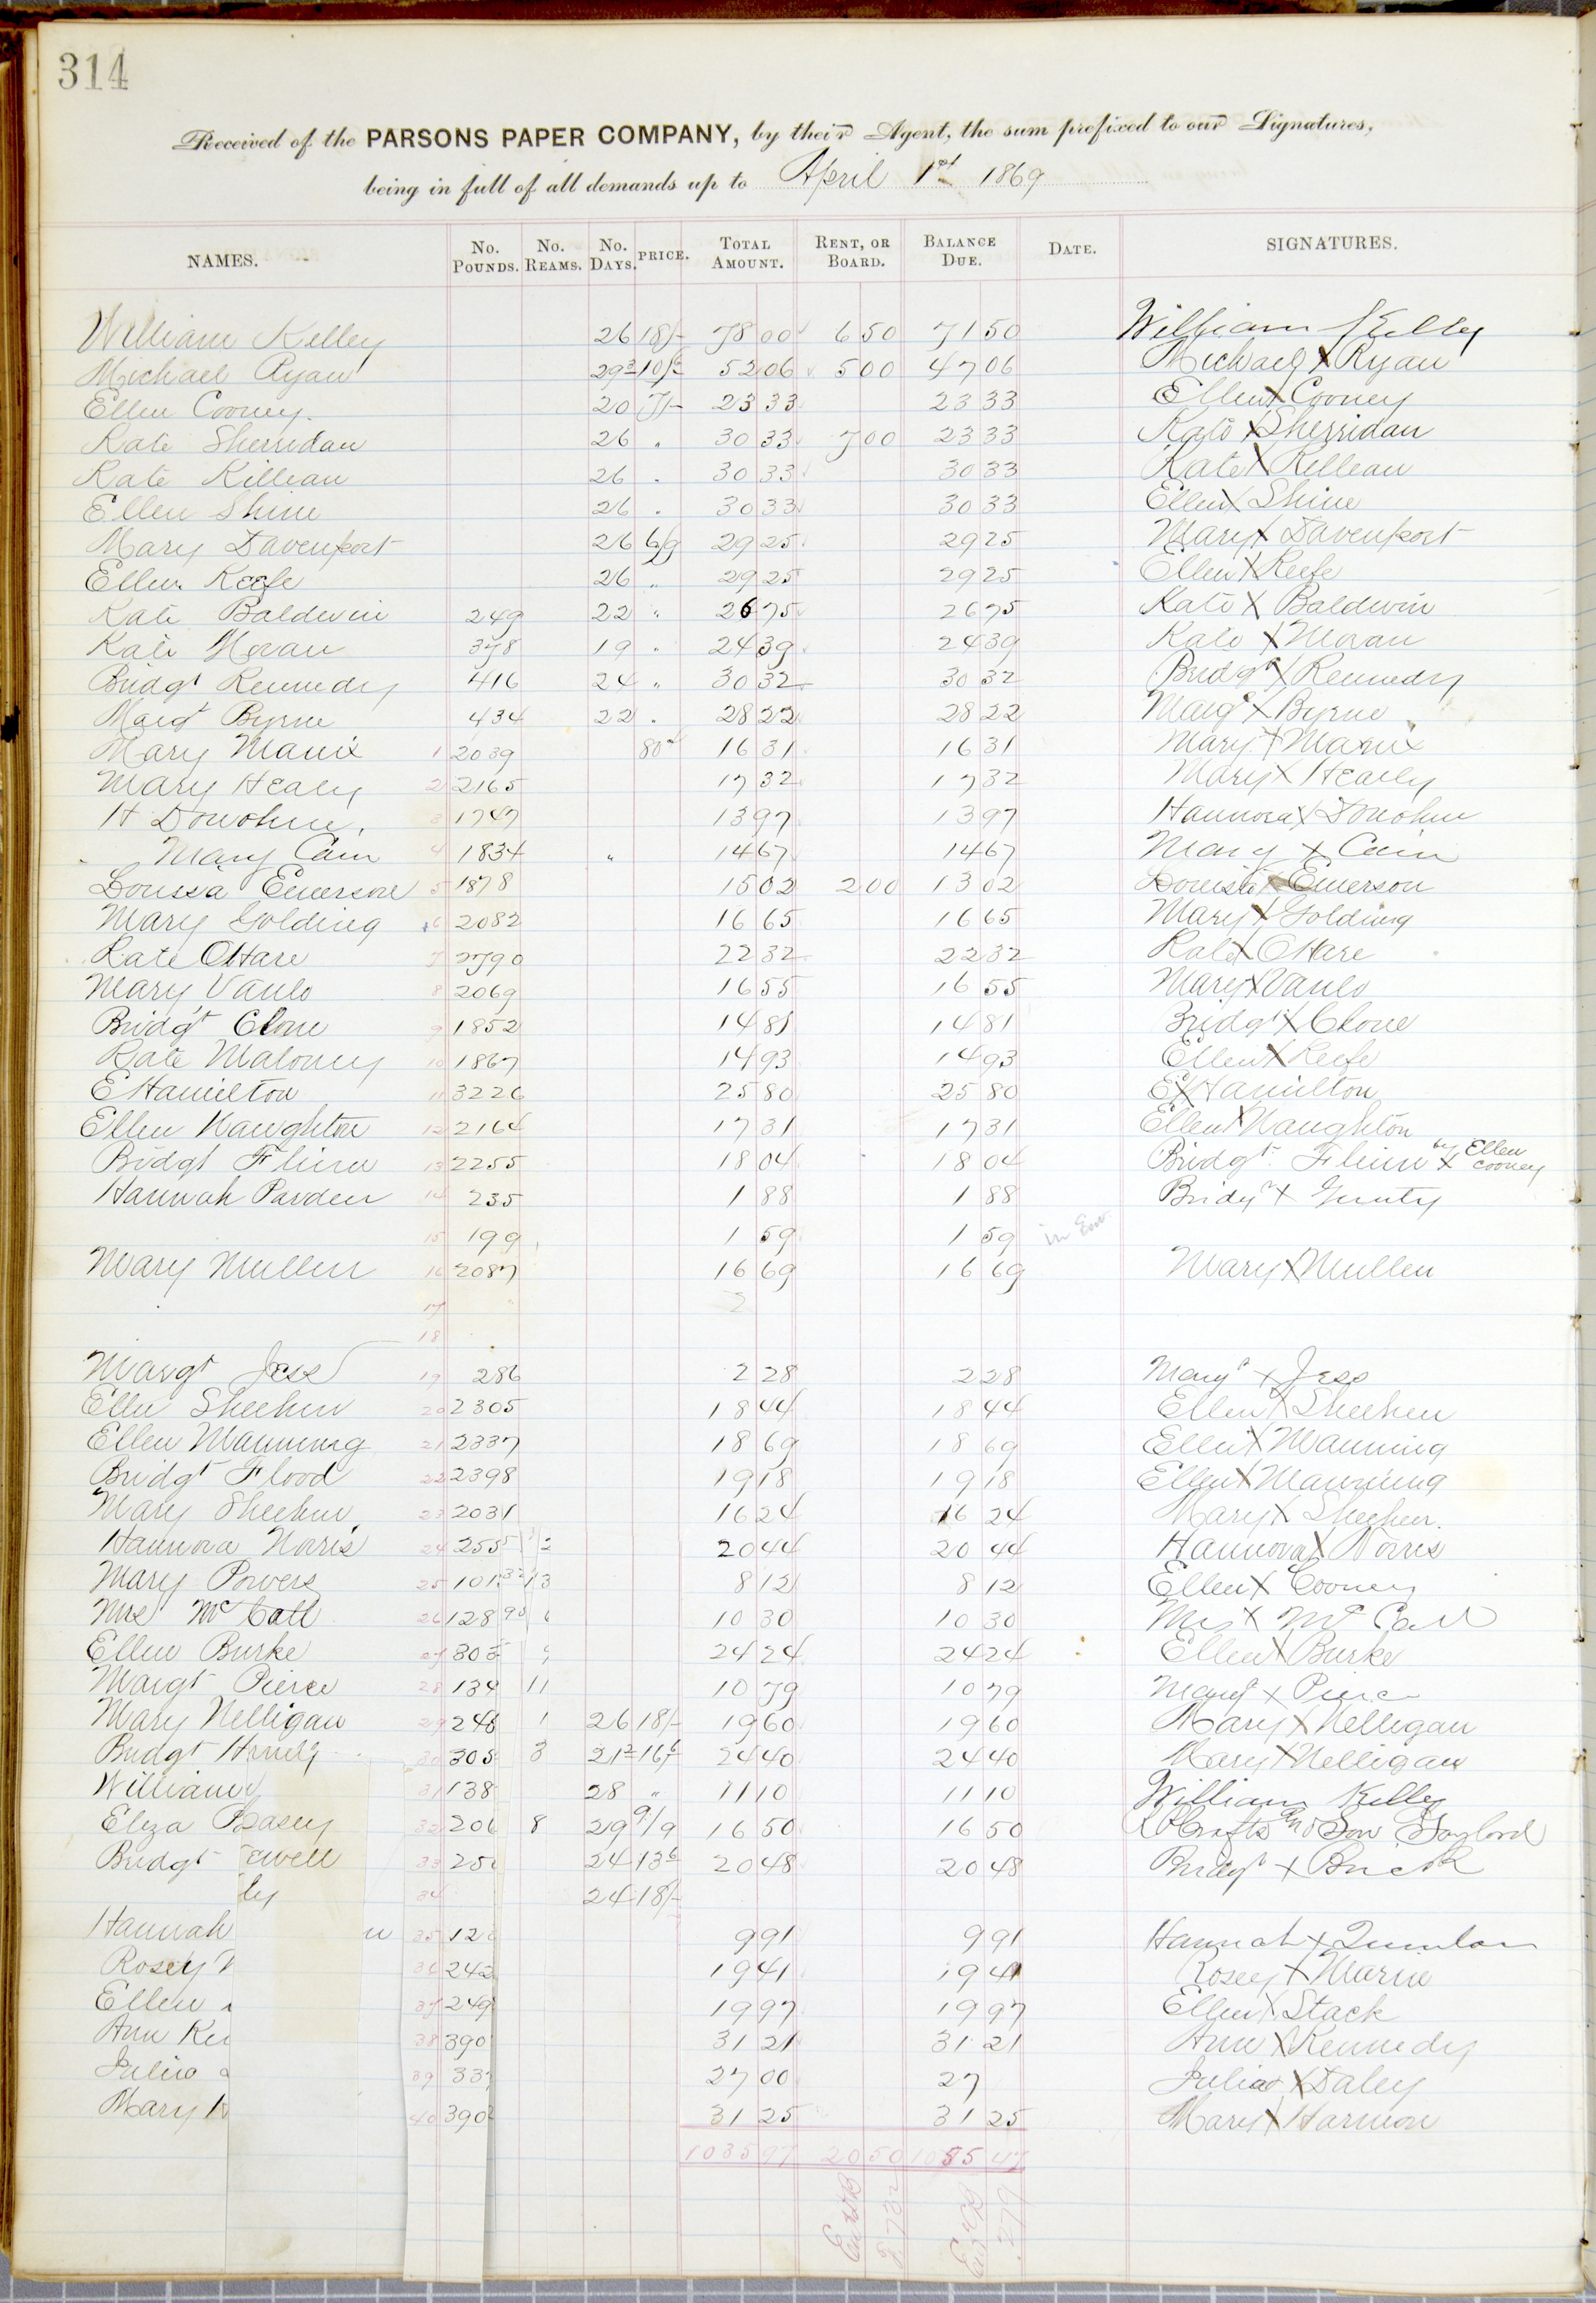 314
Received of the PARSONS PAPER COMPANY, by their Agent, the sum prefixed to our Signatures,
being in full of all demands up to April 1st 1869
NAMES. No. Pounds. No. Reams. No. Days. PRICE. Total Amount. Rent, or Board. Balance Due. Date. SIGNATURES.
William Kelley 26 18/- 78 00 6 50 71 50 William Kelley
Michael Ryan 52 06 5 00 47 06 Michael X Ryan
Ellen Cooney. 20 7/- 23 33 23 33 Ellen X Cooney
Kate Sherridan 26 " 30 33 7 00 23 33 Kate X Sherridan
Kate Killean 26 " 30 33 30 33 Kate X Killean
Ellen Shine 26 " 30 33 30 33 Ellen X Shine
Mary Davenport 26 6/9 29 25 29 25 Mary X Davenport
Ellen Keefe 26 " 29 25 29 25 Ellen X Keefe
Kate Baldwin 249 22 " 26 75 26 75 Kate X Baldwin
Kate Moran 378 19 " 24 39 24 39 Kate X Moran
Bridgt Kennedy 416 24 " 30 32 30 32 Bridgt X Kennedy
Margt Byrne 434 22 " 28 22 28 22 Margt X Byrne
Mary Manix 1 2039 80 16 31 16 31 Mary X Manix
Mary Healy 2 2165 17 32 17 32 Mary X Healy
H Donohue 3 1747 13 97 13 97 Hannora X Donohue
Mary Cain 4 1834 " 14 67 14 67 Mary X Cain
Louisa Emerson 5 1878 15 02 2 00 13 02 Louisa X Emerson
Mary Golding 6 2082 16 65 16 65 Mary X Golding
Kate OHare 7 2790 22 32 22 32 Kate X OHare
Mary Vaulo 8 2069 16 55 16 55 Mary X Vaulo
Bridgt Clone 9 1852 14 81 14 81 Bridgt X Clone
Kate Maloney 10 1867 14 93 14 93 Ellen X Keefe
E Hamilton 11 3226 25 80 25 80 E X Hamilton
Ellen Naughton 12 2164 17 31 17 31 Ellen X Naughton
Bridgt Flinn 13 2255 18 04 18 04 Bridgt Flinn X by Ellen Cooney
Hannah Parden 14 235 1 88 1 88 Bridgt X Ginty
15 199 1 59 1 59 in Env.
Mary Mullen 16 2087 16 69 16 69 Mary X Mullen
17
18
Margt Jess 19 286 2 28 2 28 Margt X Jess
Ellen Sheehen 20 2305 18 44 18 44 Ellen X Sheehen
Ellen Manning 21 2337 18 69 18 69 Ellen X Manning
Bridgt Flood 22 2398 19 18 19 18 Ellen X Manning
Mary Sheehen 23 2031 16 24 16 24 Mary X Sheehen.
Hannora Norris 24 255 2 20 44 20 44 Hannora X Norris
Mary Powers 25 101 13 8 12 8 12 Ellen X Cooney
Mrs McCall 26 128 10 30 10 30 Mrs X McCall
Ellen Burke 27 303 24 24 24 24 Ellen X Burke
Margt Pierce 28 134 11 10 79 10 79 Margt X Pierce
Mary Nelligan 29 248 1 26 18/- 19 60 19 60 Mary X Nelligan
Bridgt 30 305 3 24 40 24 40 Mary X Nelligan
William 31 138 28 " 11 10 11 10 William Kelley
Eliza Basey 32 206 8 29 9/9 16 50 16 50 R P Crafts Son Gaylord
Bridgt ewell 33 25 24 13 6 20 48 20 48 Bridgt X Brick
ly 34 24 18/-
Hannah n 35 12 9 91 9 91 Hannah X Quinlan
Rosey 36 242 19 41 19 41 Rosey X Marne
Ellen 37 249 19 97 19 97 Ellen X Stack
Ann Ke 38 390 31 21 31 21 Ann X Kennedy
Julia 39 337 27 00 27 Julia X Daley
Mary 40 390 31 25 31 25 Mary X Harmon
1035 97 20 50 47